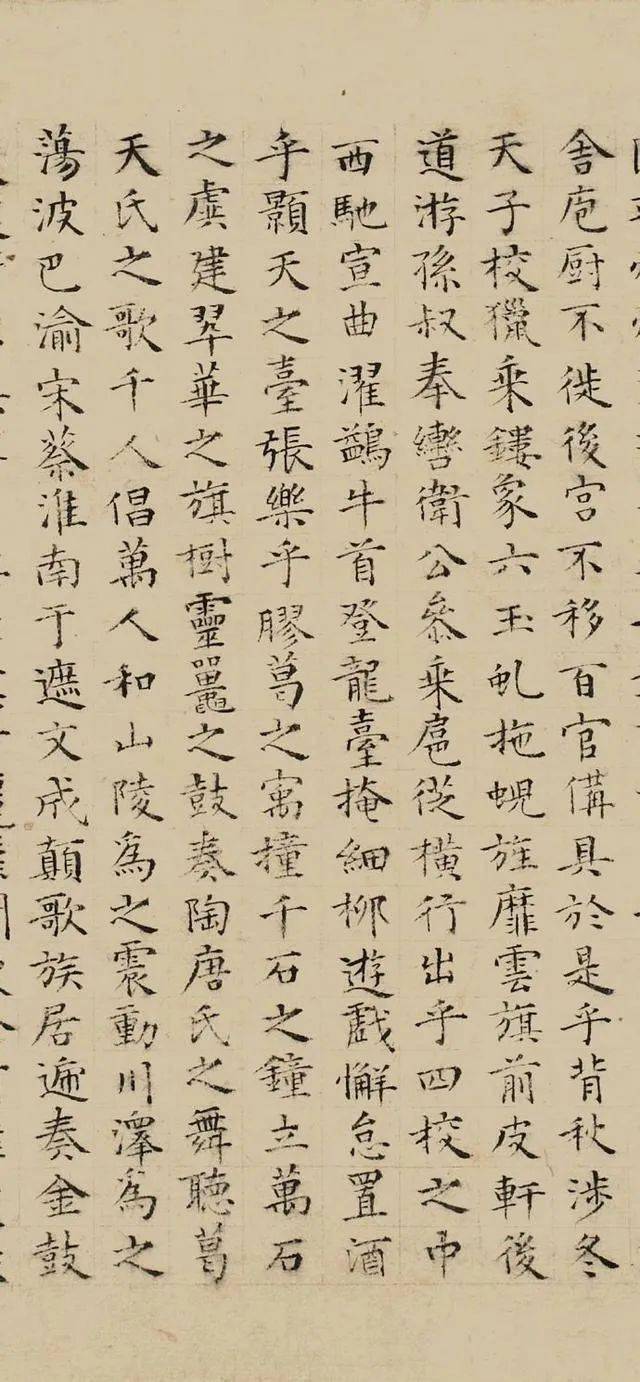 舎庖厨不徙後宮不移百官備具於是乎背秋涉冬
天子校獵乗鏤象六玉虬拖蜺旌靡雲旗前皮軒後
道游孫叔奉轡衛公叅乗扈從橫行出乎四校之中
西馳宣曲濯鷁牛首登龍臺掩細柳遊戲懈怠置酒
乎顥天之臺張樂乎膠葛之寓撞千石之鐘立萬石
之虡建翠華之旗樹靈鼉之鼓奏陶唐氏之舞聽葛
天氏之歌千人倡萬人和山陵為之震動川澤為之
蕩波巴渝宋蔡淮南干遮文成顛歌族居遞奏金鼓